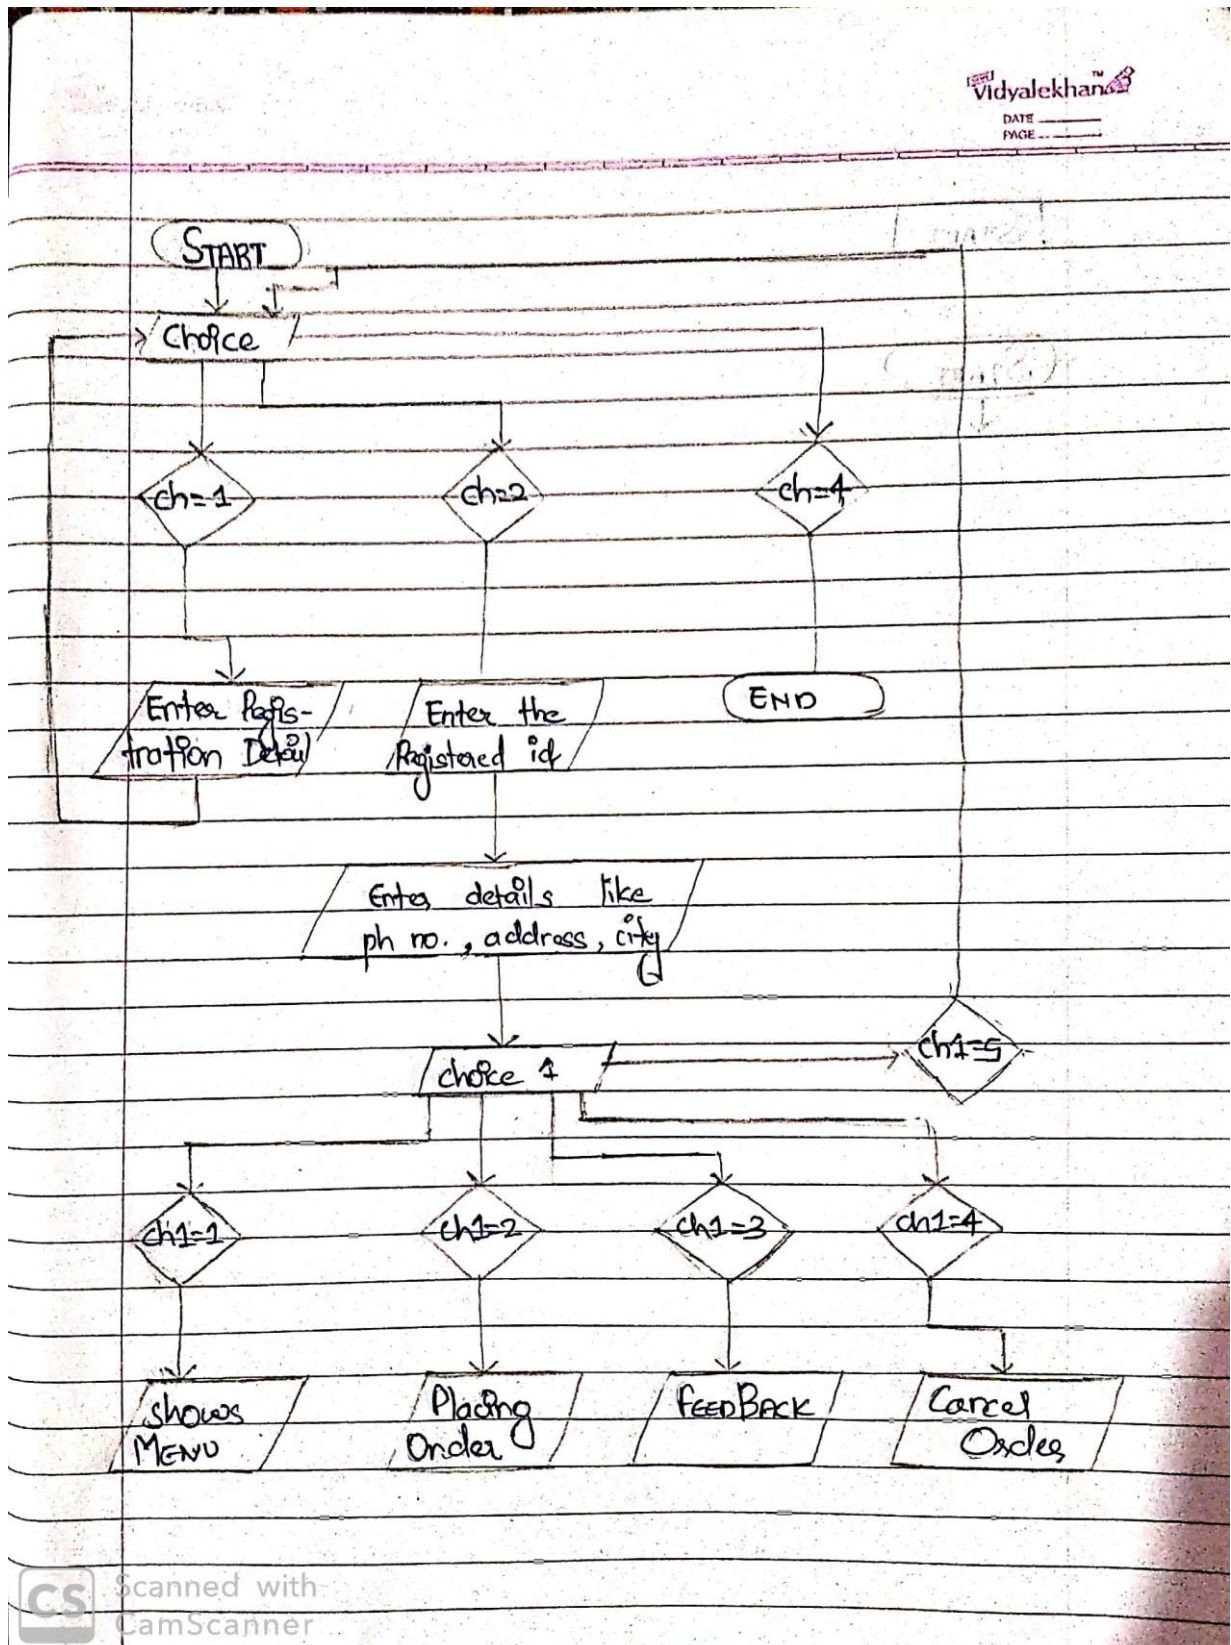 Vidyalekhan™
DATE
PAGE
START
Choice
ch=1
ch=2
ch=4
Enter Regis-
tration Detail
Enter the
Registered id
END
Enter details like
ph no., address, city
choice 1
ch1=5
ch1=1
ch1=2
ch1=3
ch1=4
shows
MENU
Placing
Order
FEEDBACK
Cancel
Order
CS
Scanned with
CamScanner